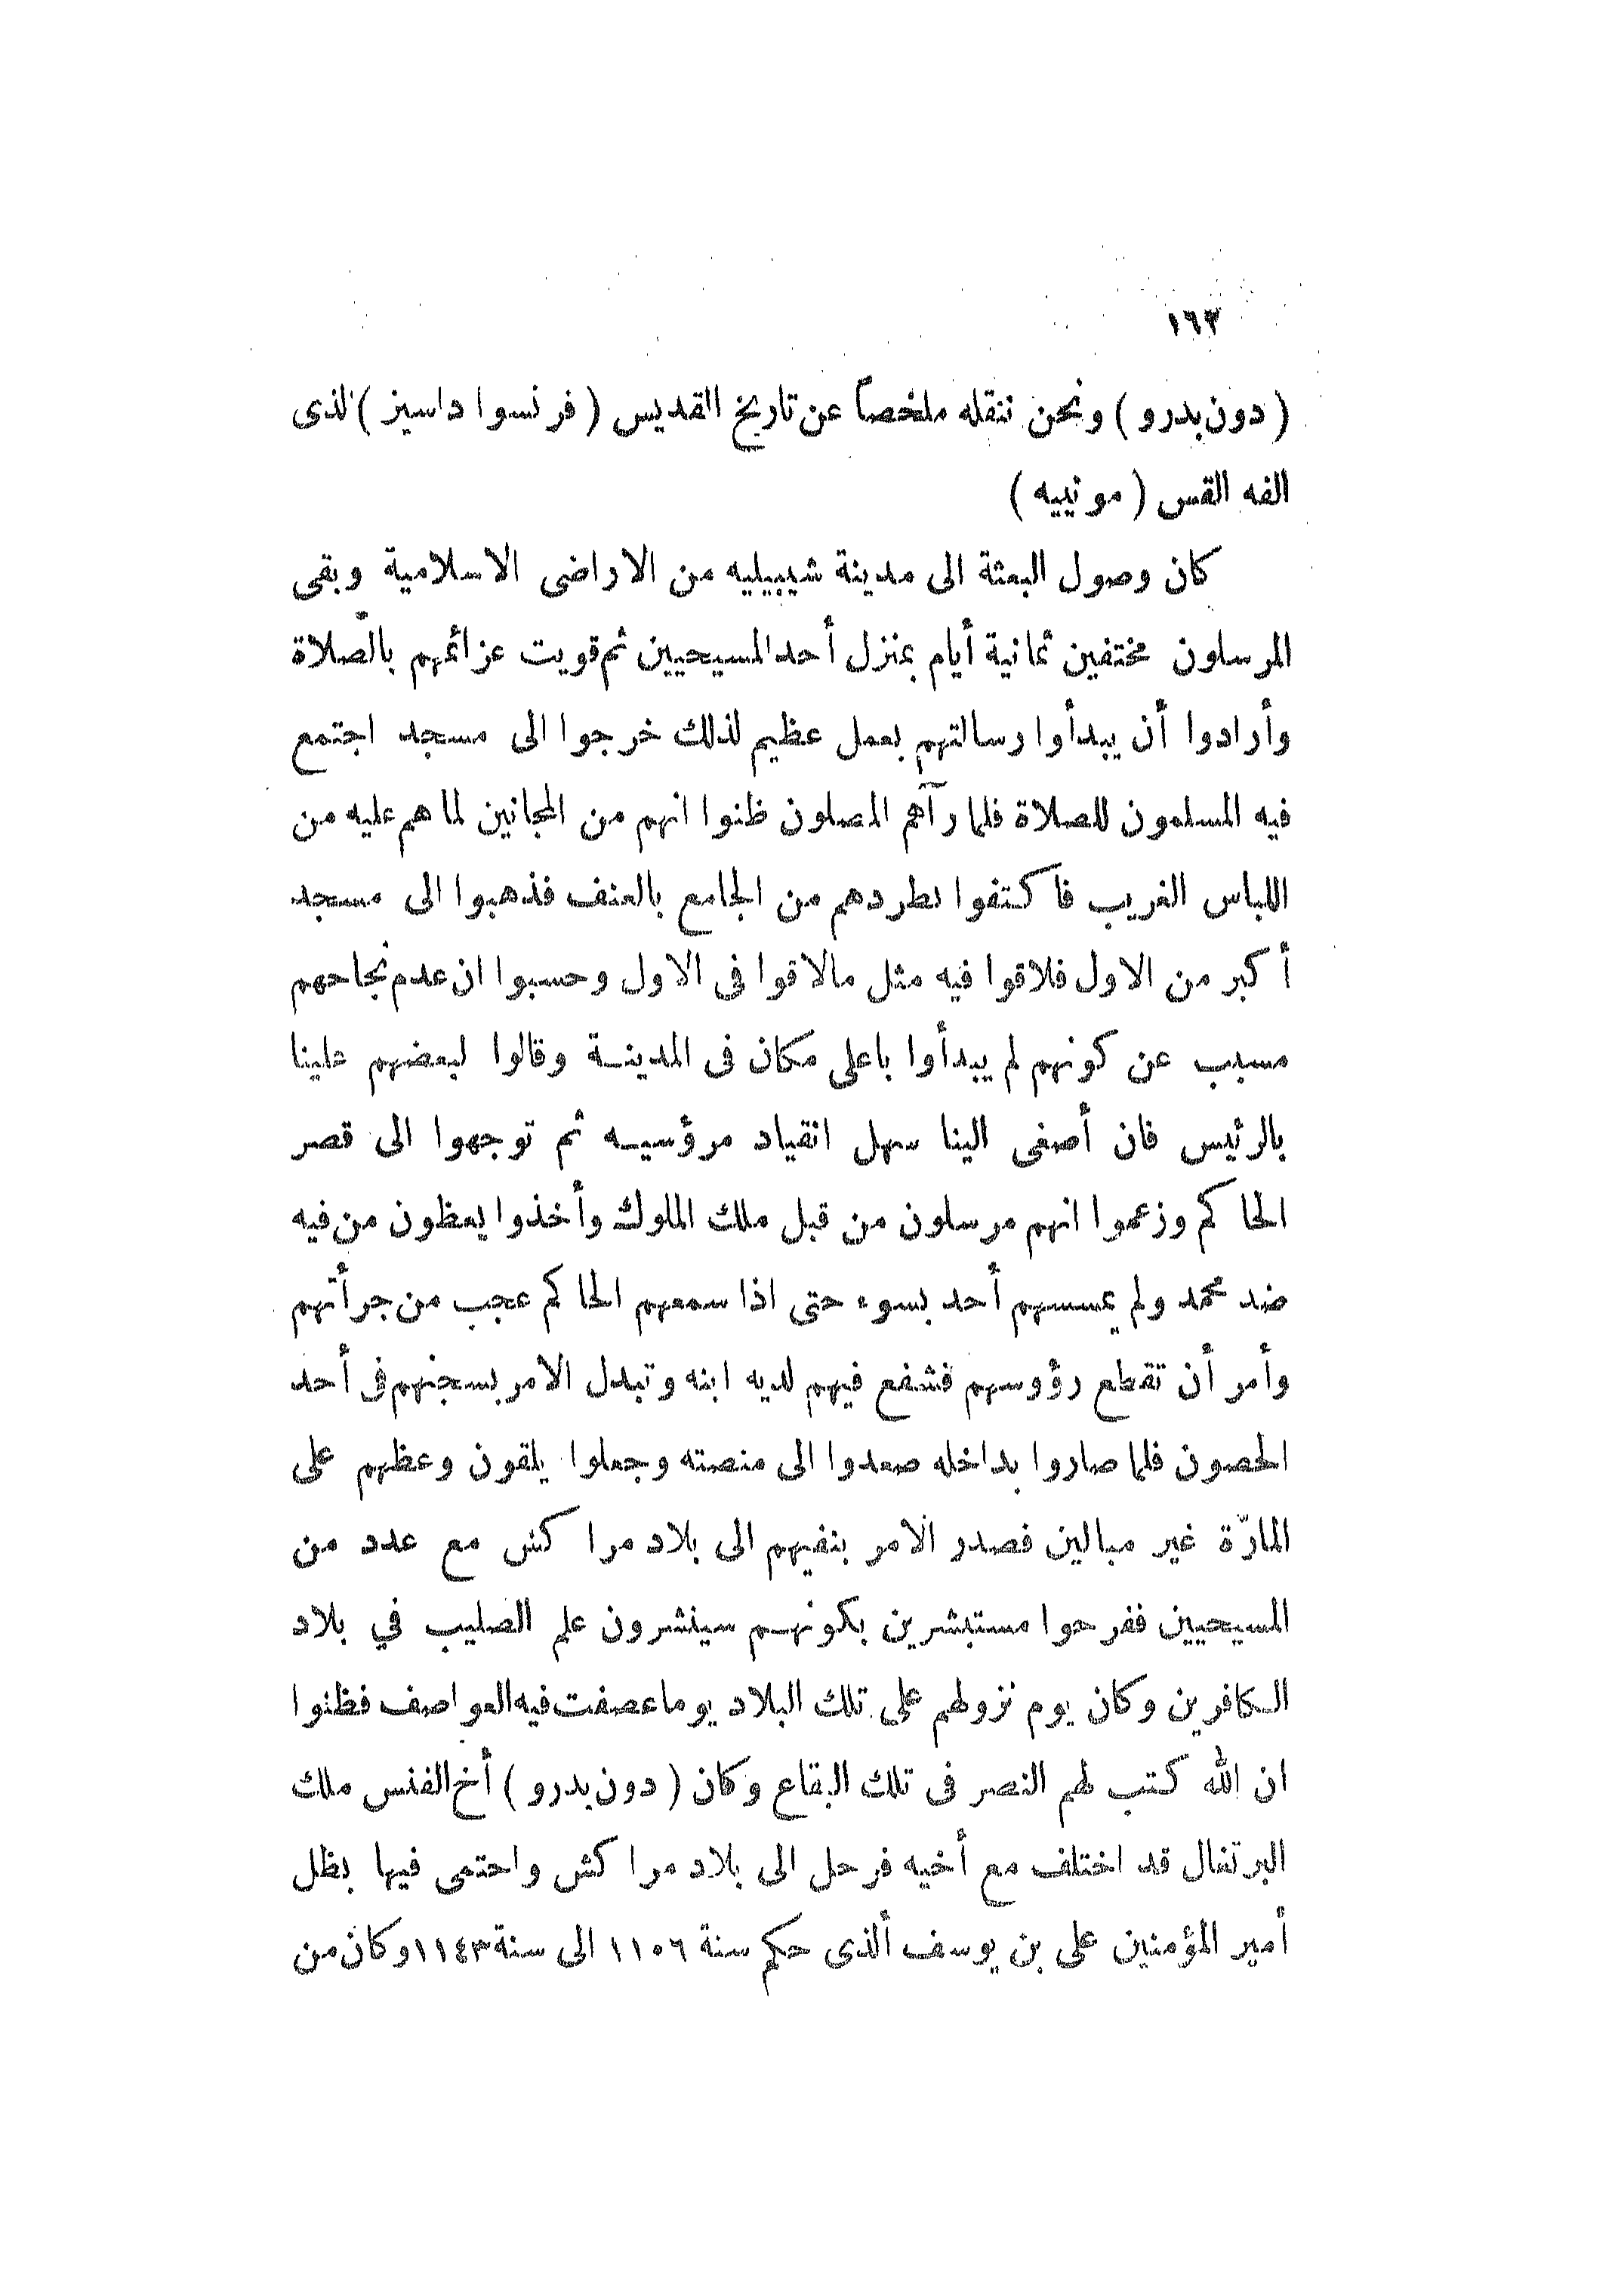 ١٦٣
(دون بدرو) ونحن ننقله ملخصاً عن تاريخ القديس (فرنسوا داسيز) الذى
الفه القس (مونييه)
كان وصول البعثة الى مدينة شيبيليه من الاراضى الاسلامية وبقى
المرسلون مختفين ثمانية أيام بمنزل أحد المسيحيين ثم قويت عزائمهم بالصّلاة
وأرادوا أن يبدأوا رسالتهم بعمل عظيم لذلك خرجوا الى مسجد اجتمع
فيه المسلمون للصلاة فلما رآهم المصلون ظنوا انهم من المجانين لما هم عليه من
اللباس الغريب فاكتفوا بطردهم من الجامع بالعنف فذهبوا الى مسجد
أكبر من الاول فلاقوا فيه مثل مالاقوا فى الاول وحسبوا ان عدم نجاحهم
مسبب عن كونهم لم يبدأوا باعلى مكان فى المدينة وقالوا لبعضهم علينا
بالرئيس فان أصغى الينا سهل انقياد مرؤسيه ثم توجهوا الى قصر
الحاكم وزعموا انهم مرسلون من قبل ملك الملوك وأخذوا يعظون من فيه
ضد محمد ولم يمسسهم أحد بسوء حتى اذا سمعهم الحاكم عجب من جرأتهم
وأمر أن تقطع رؤوسهم فشفع فيهم لديه ابنه وتبدل الامر بسجنهم فى أحد
الحصون فلما صاروا بداخله صعدوا الى منصته وجعلوا يلقون وعظهم على
المارّة غير مبالين فصدر الامر بنفيهم الى بلاد مراكش مع عدد من
المسيحيين ففرحوا مستبشرين بكونهم سينشرون علم الصليب في بلاد
الكافرين وكان يوم نزولهم على تلك البلاد يوما عصفت فيه العواصف فظنوا
ان الله كتب لهم النصر فى تلك البقاع وكان (دون بدرو) أخ الفنس ملك
البرتغال قد اختلف مع أخيه فرحل الى بلاد مراكش واحتمى فيها بظل
أمير المؤمنين على بن يوسف ألذى حكم سنة ١١٠٦ الى سنة ١١٤٣ وكان من